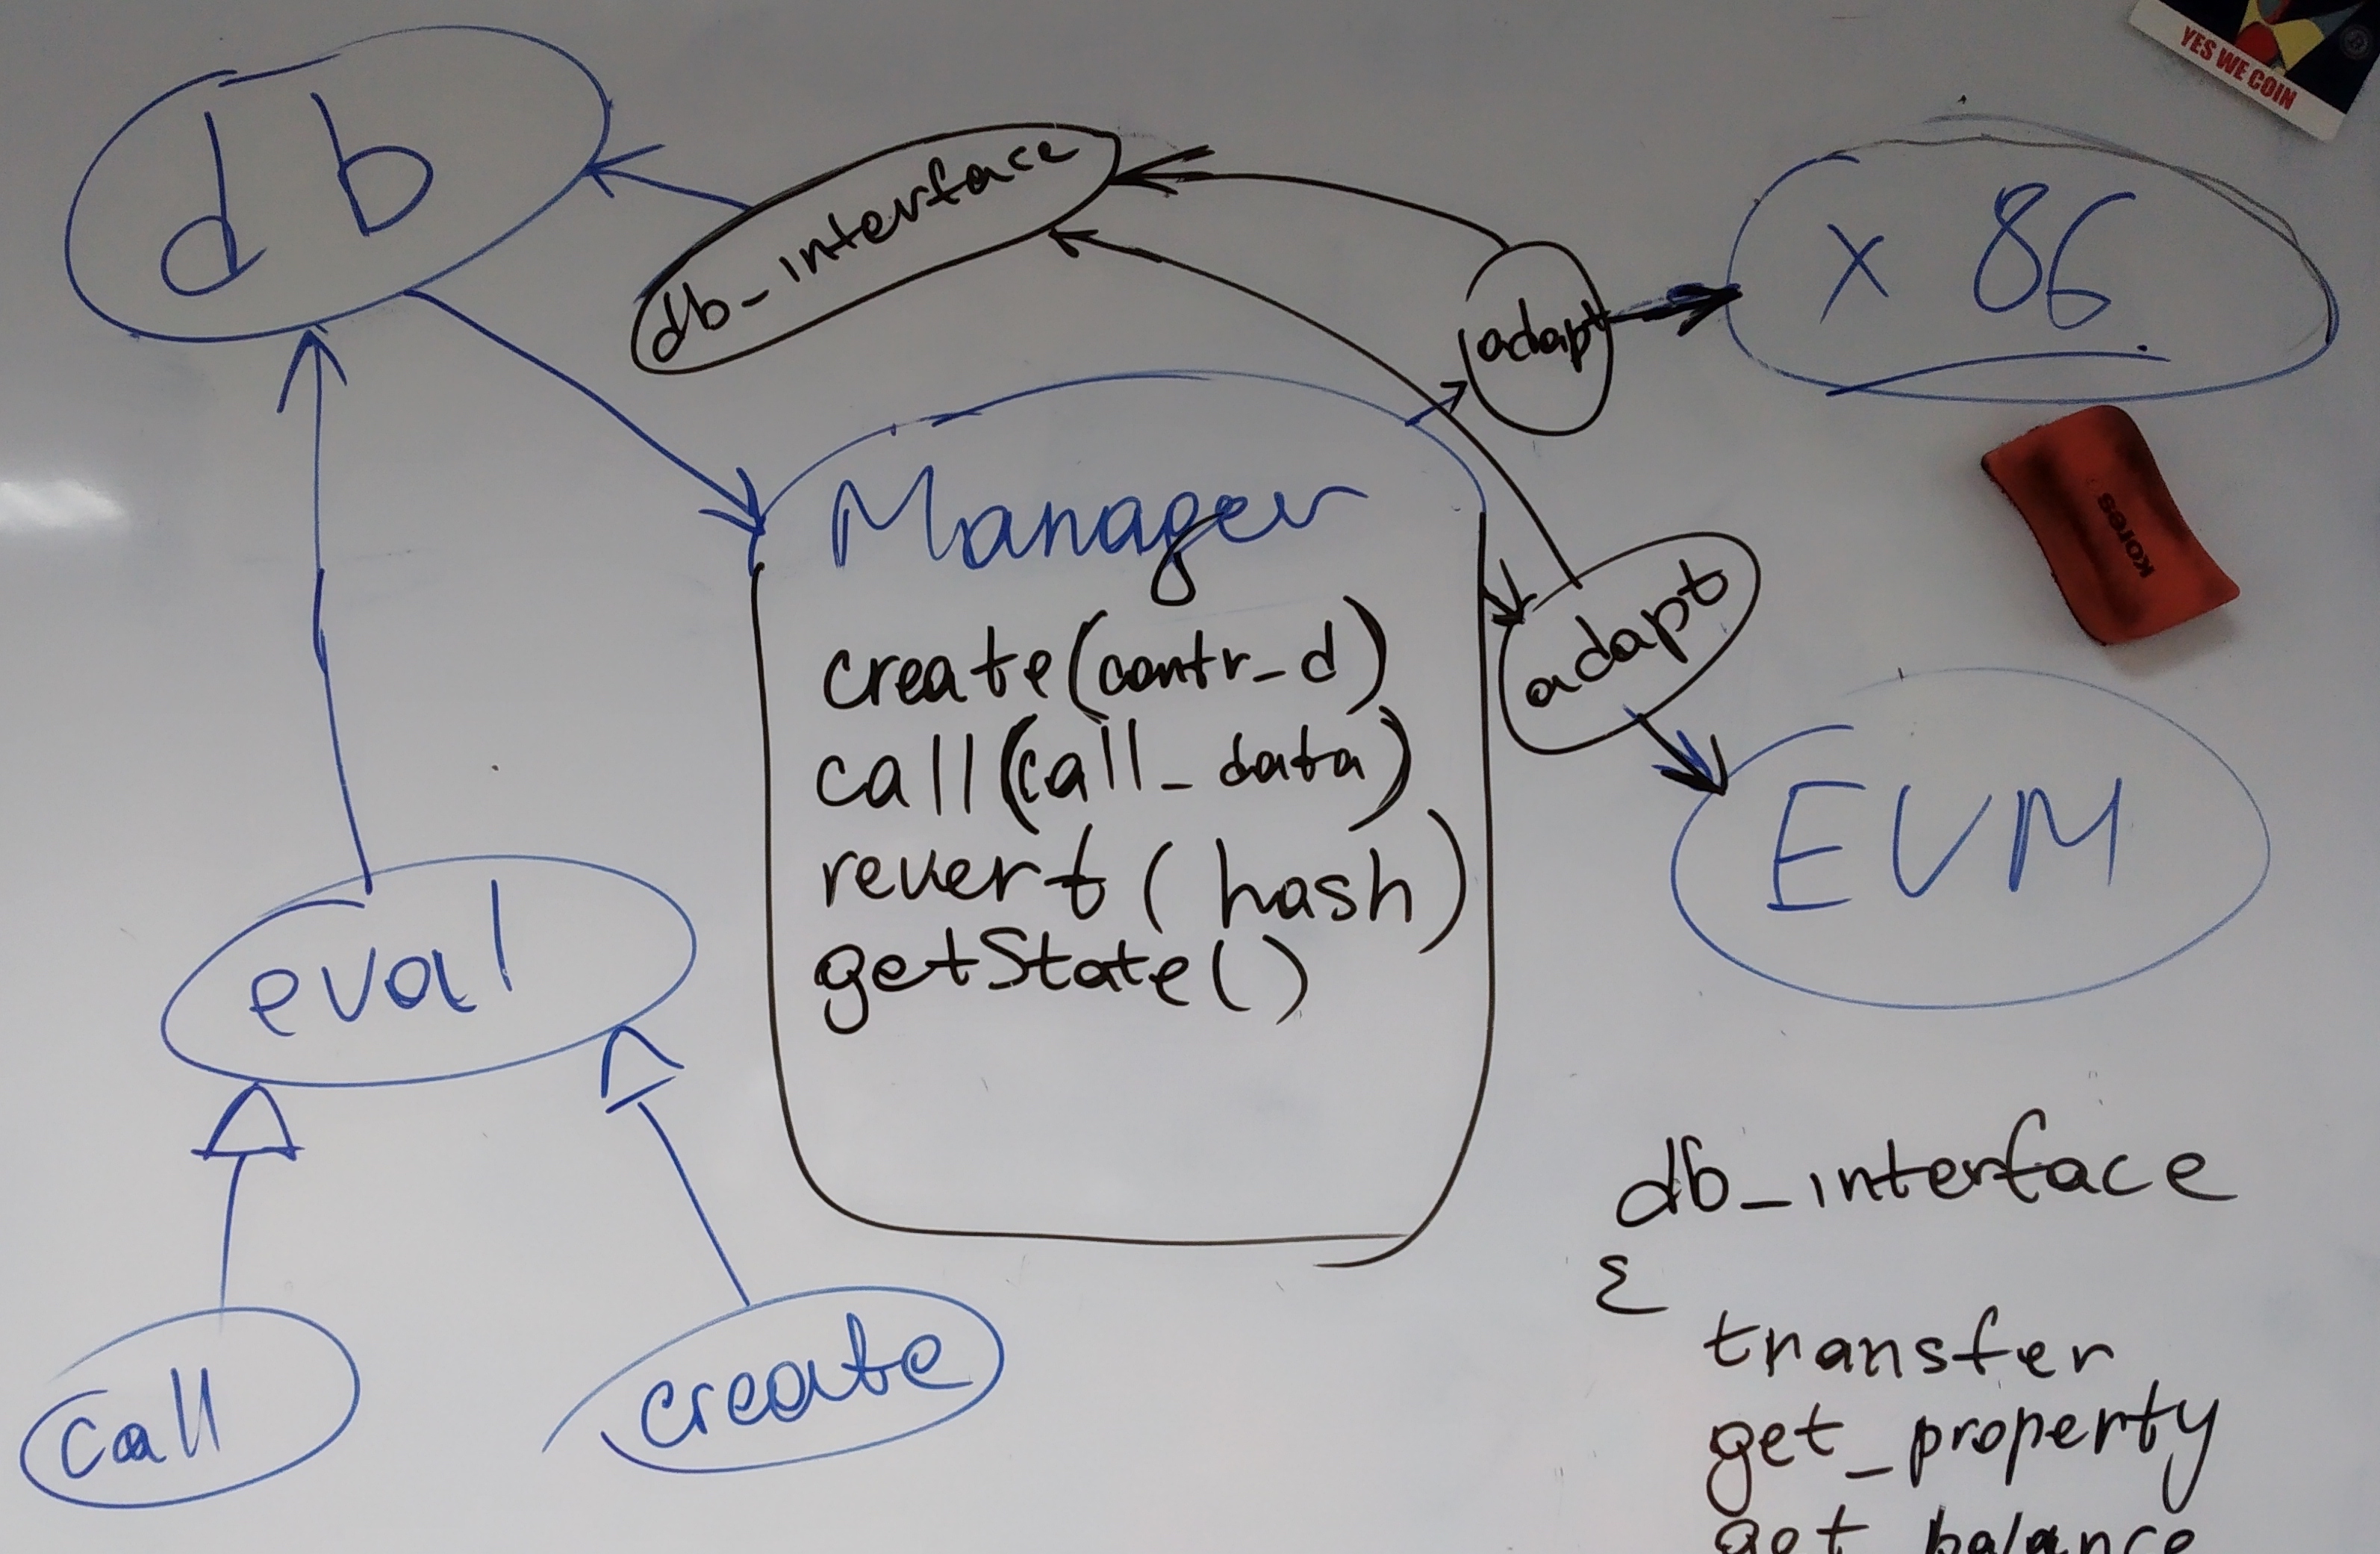 YES WE COIN
d b
db_interface
x 86
adapt
kores
Manager
create(contr_d)
call(call_data)
revert(hash)
getState()
adapt
EVM
eval
call
create
db_interface
{
transfer
get_property
get_balance